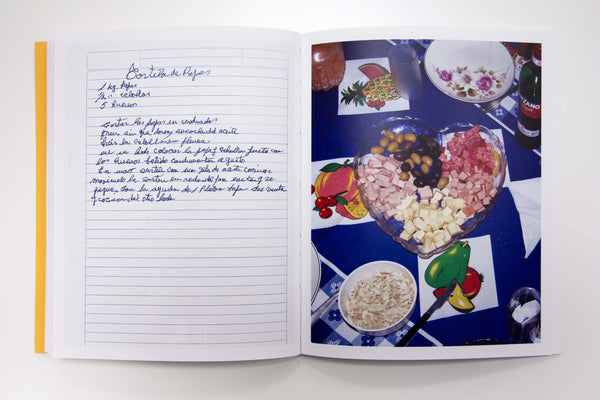 Tortilla de Papas
1 kg. Papas
1/2 " cebollas
5 huevos
Cortar las papas en cuadrados
Freir sin que doren sacarlas del aceite
freir la cebolla
en un bols colocar la papa y cebolla junto con
los huevos batido condimentar a gusto
En una sarten con una gota de aceite cocinar
moviendo la sarten en redondo para evitar q se
pegue, con la ayuda de 1 plato o tapa dar vuelta
y cocinar del otro lado